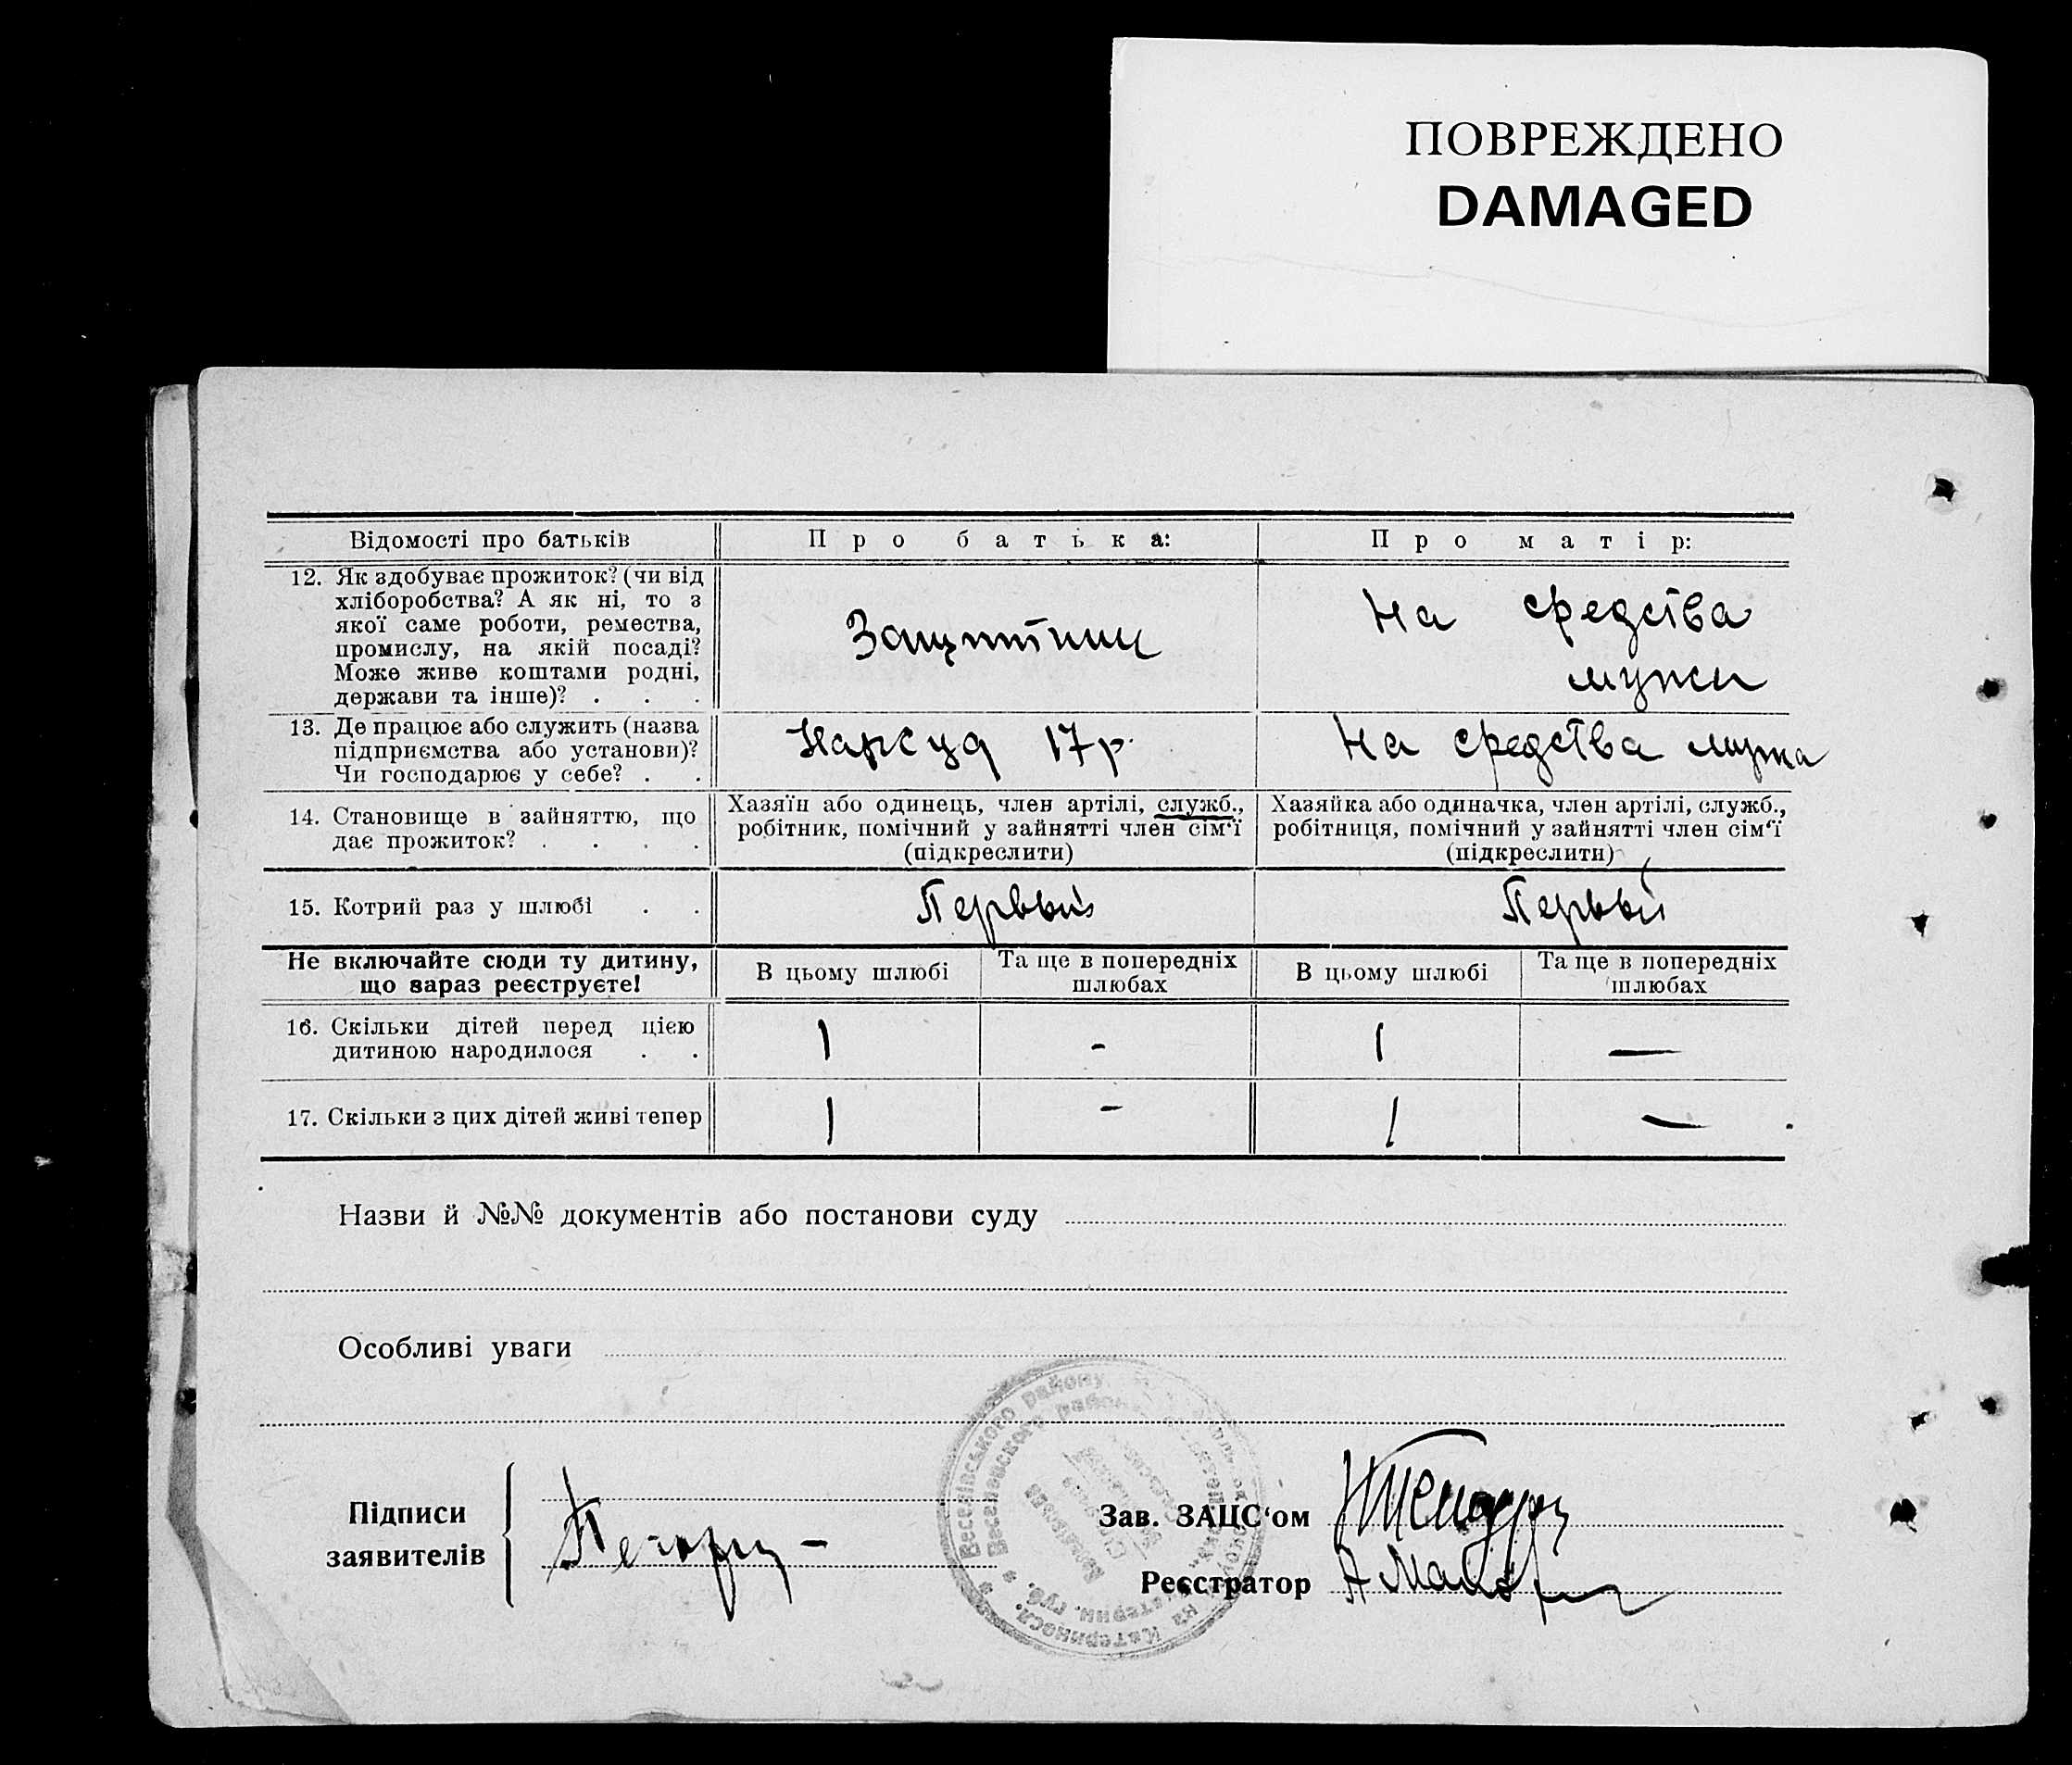 ПОВРЕЖДЕНО
DAMAGED
Відомості про батьків
Про батька:
Про матір:
12. Як здобуває прожиток? (чи від
хліборобства? А як ні, то з
якої саме роботи, ремества,
промислу, на якій посаді?
Може живе коштами родні,
держави та інше)? . . .
Защитник
На средства
мужа
13. Де працює або служить (назва
підприємства або установи)?
Чи господарює у себе? . .
Нарсуд 17 р.
На средства мужа
14. Становище в зайняттю, що
дає прожиток? . . . .
Хазяїн або одинець, член артілі, служб.,
робітник, помічний у зайнятті член сім'ї
(підкреслити)
Хазяйка або одиначка, член артілі, служб.,
робітниця, помічний у зайнятті член сім'ї
(підкреслити)
15. Котрий раз у шлюбі . .
Первый
Первый
Не включайте сюди ту дитину,
що зараз реєструєте!
В цьому шлюбі
Та ще в попередніх
шлюбах
В цьому шлюбі
Та ще в попередніх
шлюбах
16. Скільки дітей перед цією
дитиною народилося . .
1
-
1
—
17. Скільки з цих дітей живі тепер
1
-
1
—
Назви й №№ документів або постанови суду
Особливі уваги
Веселівського району
Веселовского района
Підписи
заявителів
Зав. ЗАЦС'ом
Реєстратор